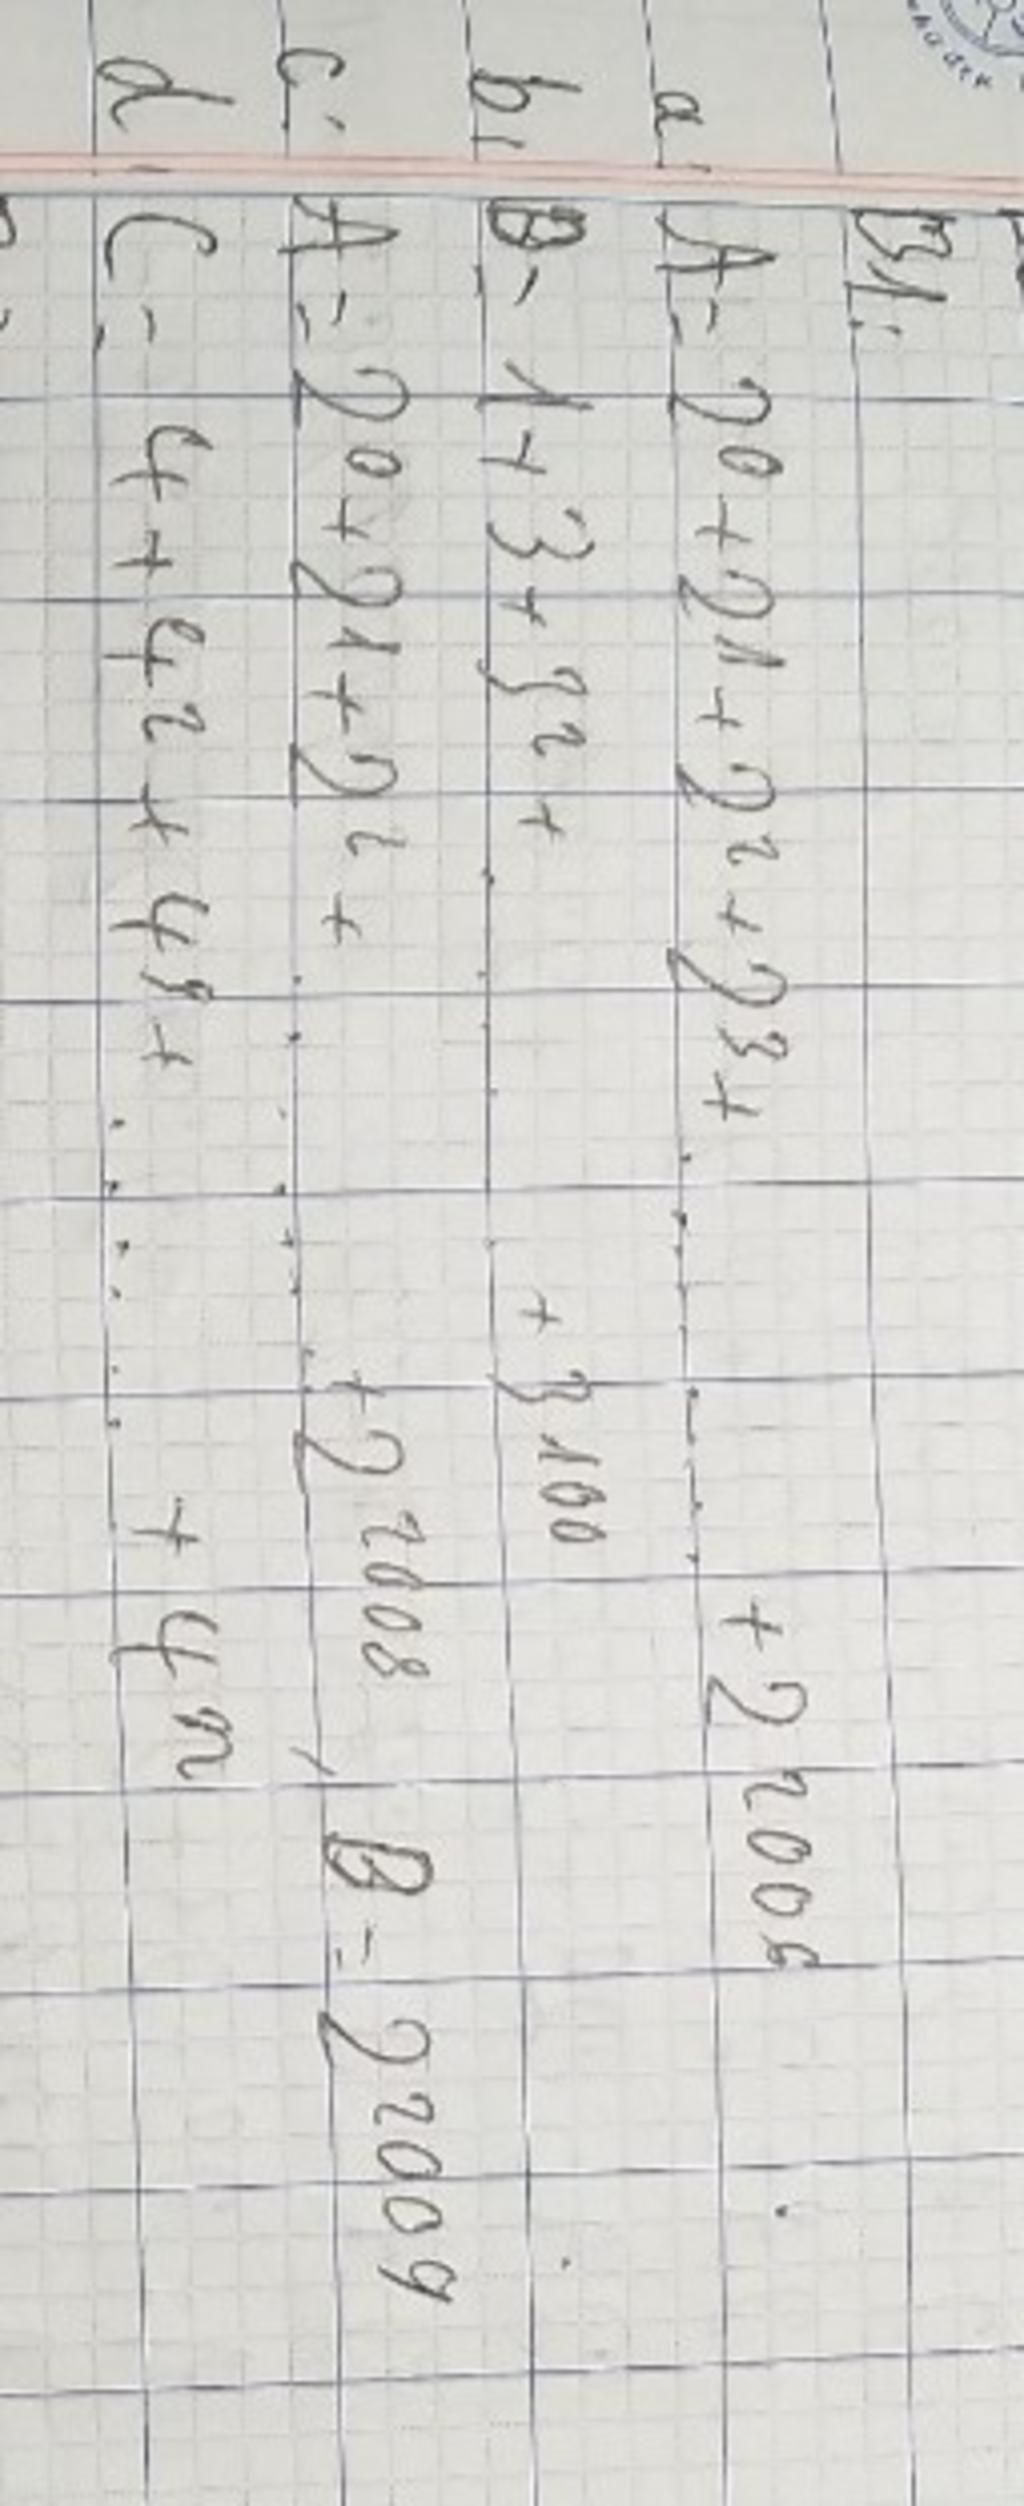 B1:
a, A = 2⁰ + 2¹ + 2² + 2³ + ........ + 2²⁰⁰⁵.
b, B = 1 + 3 + 3² + ..... + 3¹⁰⁰.
c, A = 2⁰ + 2¹ + 2² + ........ + 2²⁰⁰⁸, B = 2²⁰⁰⁹
d, C = 4 + 4² + 4³ + ...... + 4ⁿ